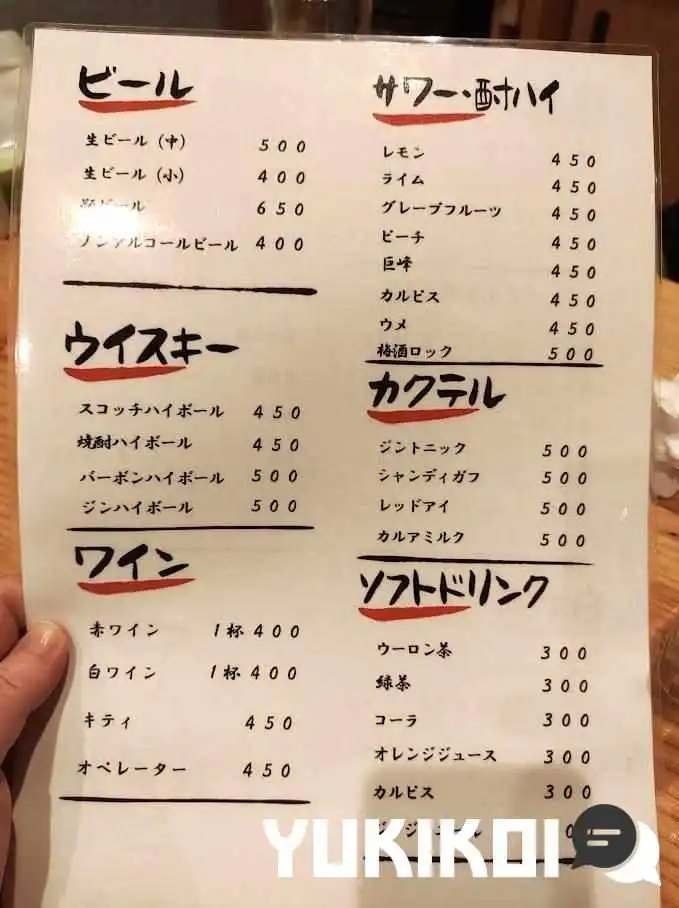 ビール
生ビール (中) 500
生ビール (小) 400
瓶ビール 650
ノンアルコールビール 400
ウイスキー
スコッチハイボール 450
焼酎ハイボール 450
バーボンハイボール 500
ジンハイボール 500
ワイン
赤ワイン 1杯 400
白ワイン 1杯 400
キティ 450
オペレーター 450
サワー・酎ハイ
レモン 450
ライム 450
グレープフルーツ 450
ピーチ 450
巨峰 450
カルピス 450
ウメ 450
梅酒ロック 500
カクテル
ジントニック 500
シャンディガフ 500
レッドアイ 500
カルアミルク 500
ソフトドリンク
ウーロン茶 300
緑茶 300
コーラ 300
オレンジジュース 300
カルピス 300
YUKIKOI